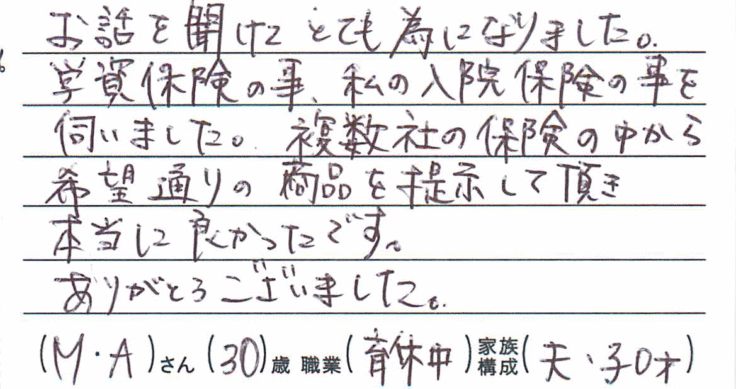 お話を聞けてとても為になりました。
学資保険の事、私の入院保険の事を
伺いました。複数社の保険の中から
希望通りの商品を提示して頂き
本当に良かったです。
ありがとうございました。
(M・A)さん(30)歳 職業(育休中)家族構成(夫・子0才)